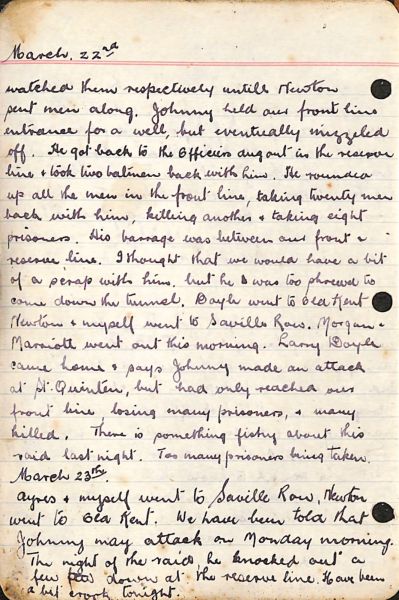 March. 22nd
watched them respectively untill Newton
sent men along. Johnny held our front line
entrance for a well, but eventually mizzeled
off. He got back to the Officers dugout in the reserve
line & took two batmen back with him. He rounded
up all the men in the front line, taking twenty men
back with him, killing another & taking eight
prisoners. His barrage was between our front &
reserve line. I thought that we would have a bit
of a scrap with him, but he was too shrewd to
come down the tunnel. Doyle went to Old Kent
Newton & myself went to Saville Row. Morgan &
Marriott went out this morning. Larry Doyle
came home & says Johnny made an attack
at St. Quinten, but had only reached our
front line, losing many prisoners, & many
killed. There is something fishy about this
raid last night. Too many prisoners being taken.
March 23rd.
Ayres & myself went to Saville Row, Newton
went to Old Kent. We have been told that
Johnny may attack on Monday morning.
The night of the raid he knocked out a
few down at the reserve line. Have been
a bit crook tonight.